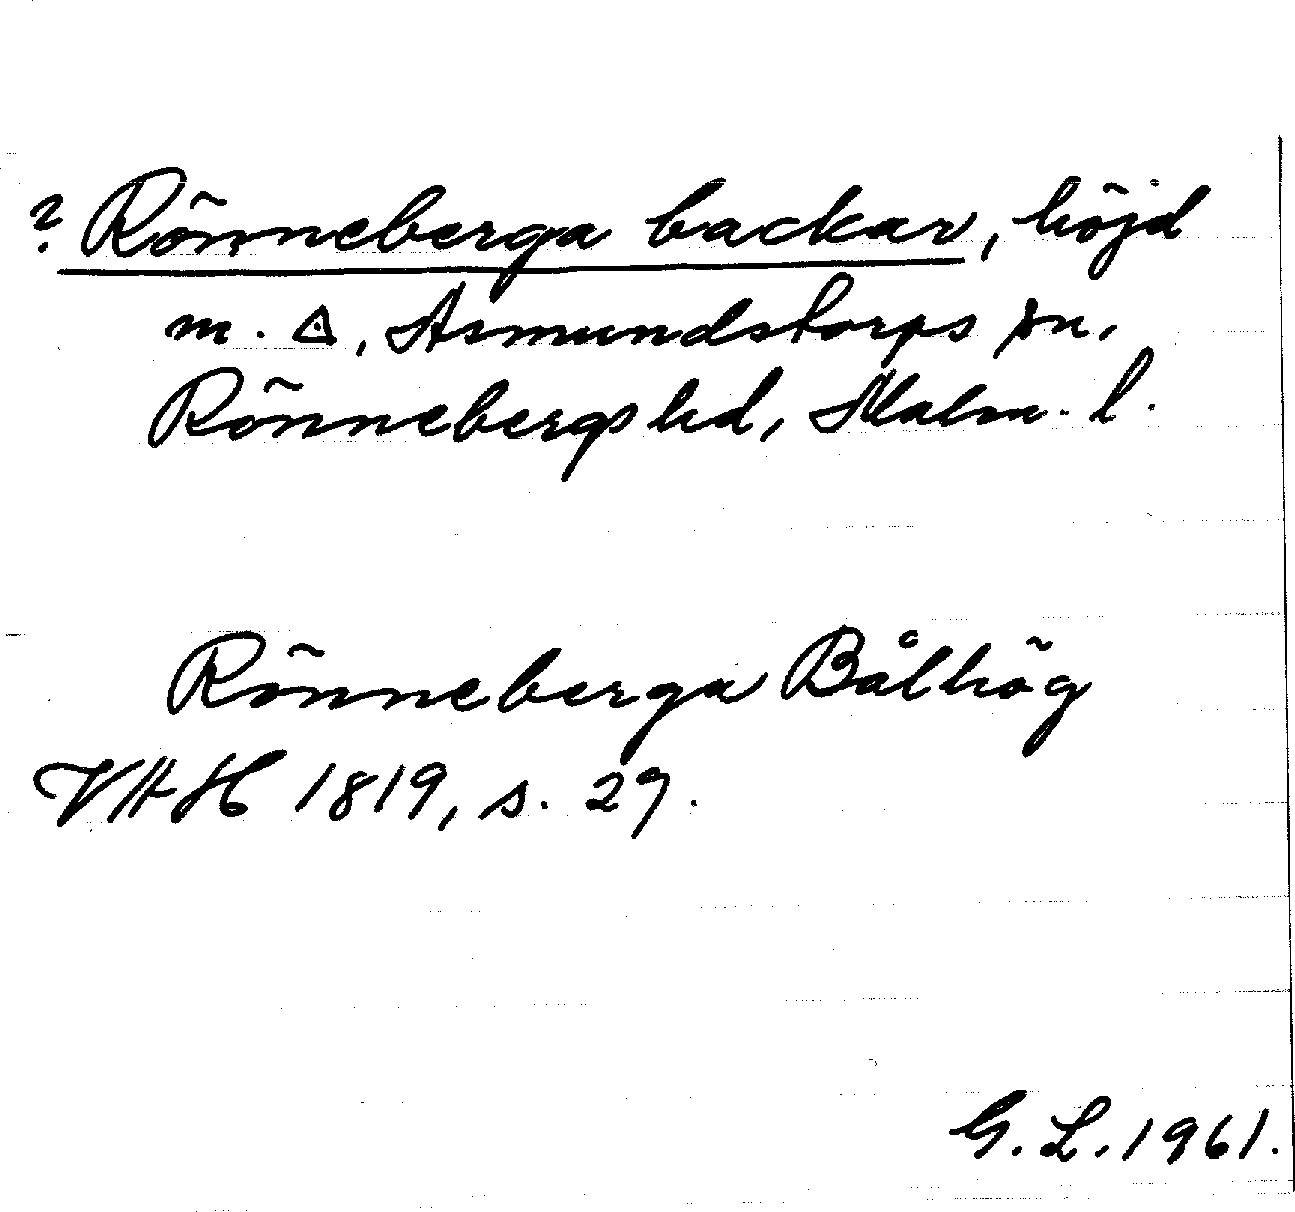 ? Rönneberga backar, höjd
m. △, Asmundstorps sn,
Rönnebergs hd, Malm. l.
Rönneberga Bålhög
VHH 1819, s. 29.
G. L. 1961.